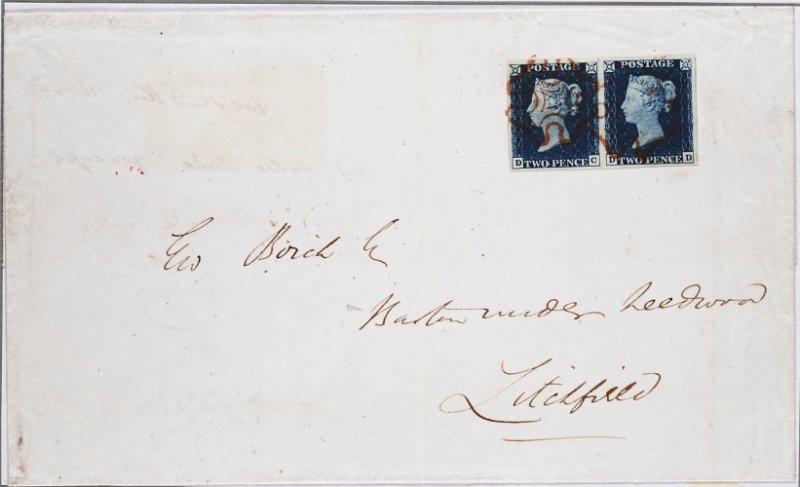 POSTAGE POSTAGE
D TWO PENCE C D TWO PENCE D
Geo Birch Esq
Barton under Needwood
Litchfield